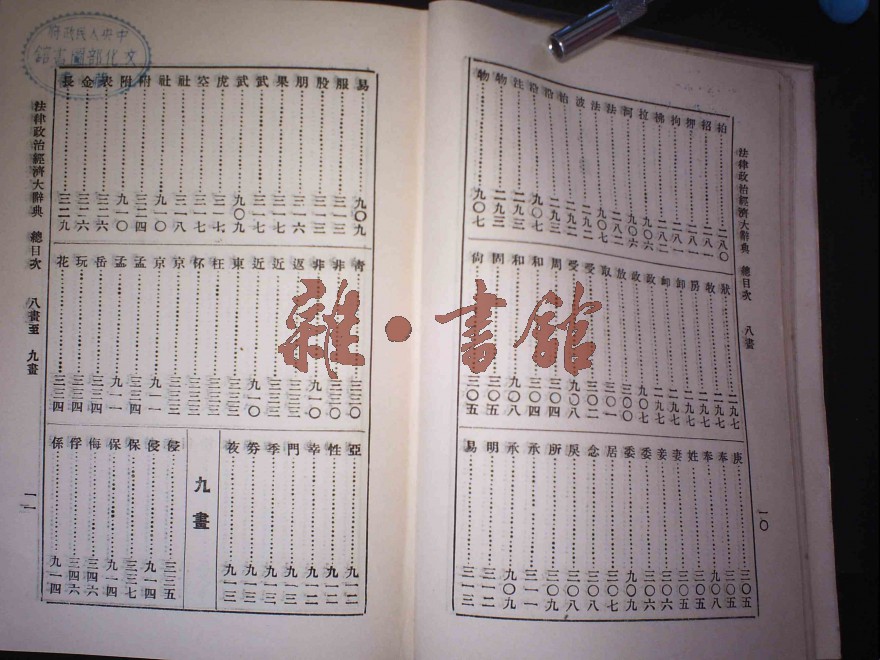 法律政治經濟大辭典 總目次 八畫 一〇
拍 二八〇
招 二八一
押 二八一
拘 二八一
拂 二八二
拉 九〇六
河 九〇六
法 二八二
法 九〇七
波 二九二
治 二九二
沿 二九三
沿 九〇七
注 二九三
物 二九三
物 九〇七
狀 二九七
牧 二九七
房 二九七
卸 二九七
卸 二九七
政 二九七
政 九〇七
放 三〇〇
取 三〇一
受 三〇二
受 九〇八
周 三〇四
和 三〇四
和 九〇八
固 三〇五
尙 三〇五
庚 三〇五
奉 三〇五
奉 九〇八
姓 三〇五
妻 三〇五
妾 三〇六
委 三〇六
委 九〇九
居 三〇六
念 三〇八
戾 三〇八
所 三〇九
承 三一一
承 九〇九
明 三一二
易 三一三
易 九〇九
服 三一三
股 三一三
朋 三一六
果 三一七
武 三一七
武 九〇九
虎 三一七
空 三一七
社 三一八
社 九一〇
附 三二四
附 九一〇
表 三二六
金 三二六
長 三二九
青 三三〇
非 三三〇
非 九一〇
返 三三三
近 三三三
近 九一〇
東 三三三
枉 三三三
怀 三三三
京 三三三
京 九一一
孟 三三四
孟 九一一
岳 三三四
玩 三三四
花 三三四
亞 九一二
性 九一二
幸 九一二
門 九一三
季 九一三
券 九一三
夜 九一三
九畫
侵 三三五
侵 九一四
保 三三七
保 九一四
侮 三四六
俘 三四六
係 九一四
法律政治經濟大辭典 總目次 八畫至九畫 一一
中央人民政府
文化部圖書館
雜·書館